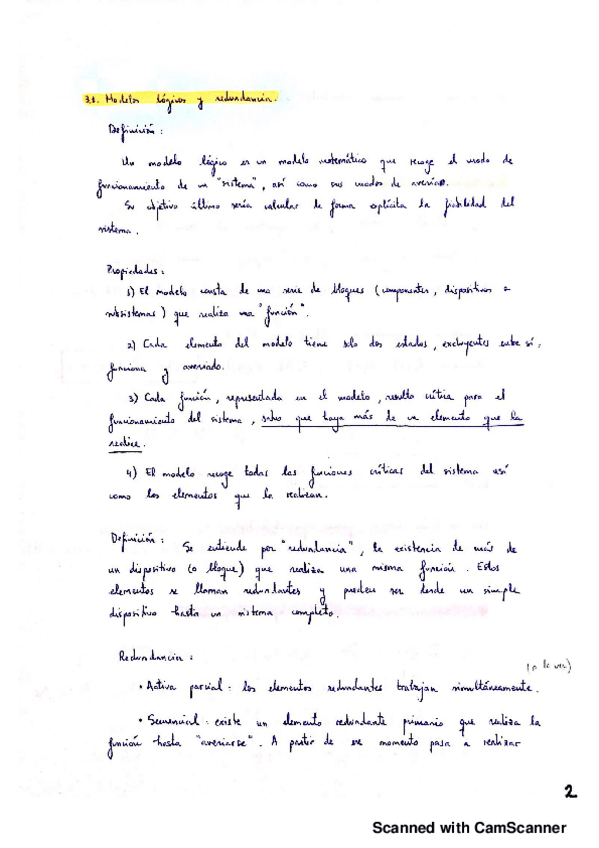 3.1. Modelos lógicos y redundancia.
Definición:
Un modelo lógico es un modelo matemático que recoge el modo de
funcionamiento de un "sistema", así como sus modos de averías.
Su objetivo último sería calcular de forma explícita la fiabilidad del
sistema.
Propiedades:
1) El modelo consta de una serie de bloques (componentes, dispositivos o
subsistemas) que realiza una "función".
2) Cada elemento del modelo tiene solo dos estados, excluyentes entre sí,
funciona y averiado.
3) Cada función, representada en el modelo, resulta crítica para el
funcionamiento del sistema, salvo que haya más de un elemento que la
realice.
4) El modelo recoge todas las funciones críticas del sistema así
como los elementos que la realizan.
Definición: Se entiende por "redundancia", la existencia de más de
un dispositivo (o bloque) que realiza una misma función. Estos
elementos se llaman redundantes y pueden ser desde un simple
dispositivo hasta un sistema completo.
Redundancia:
(a la vez)
• Activa parcial: los elementos redundantes trabajan simultáneamente.
• Secuencial: existe un elemento redundante primario que realiza la
función hasta "averiarse". A partir de ese momento pasa a realizar
2
Scanned with CamScanner